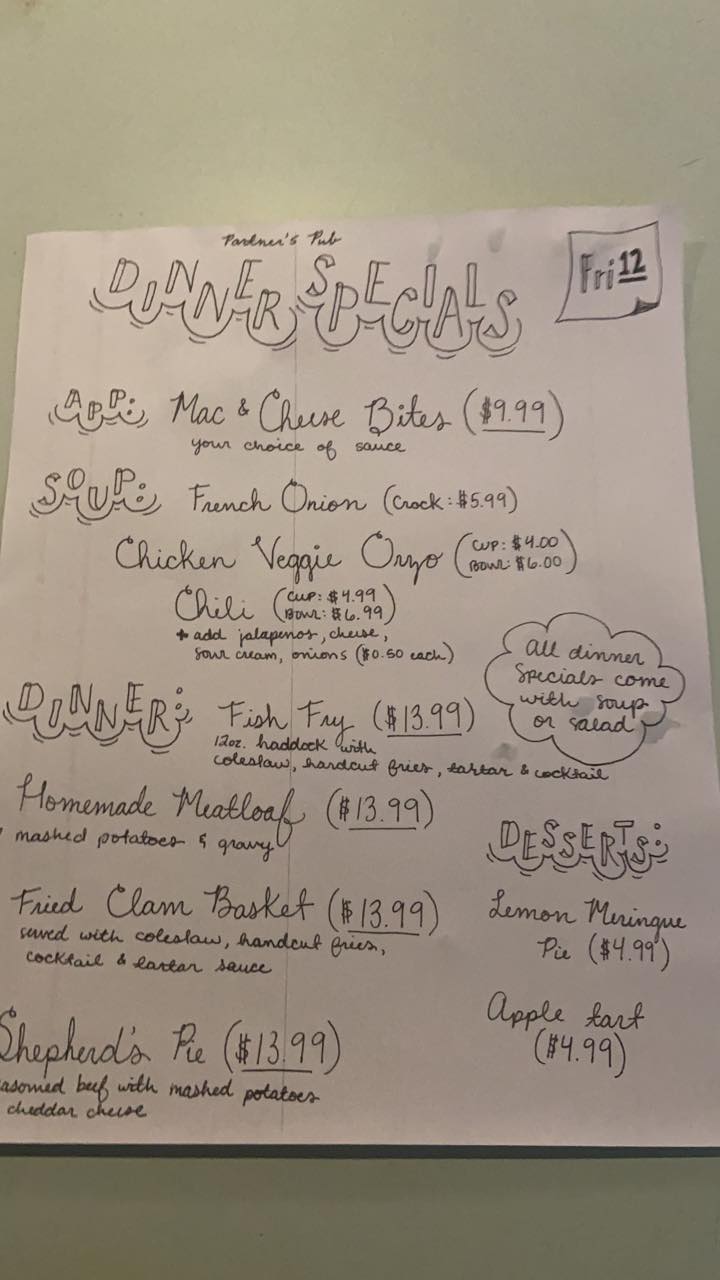 Pardner's Pub
DINNER SPECIALS
Fri 12
APP: Mac & Cheese Bites ($9.99)
your choice of sauce
SOUP: French Onion (Crock: $5.99)
Chicken Veggie Orzo (Cup: $4.00
Bowl: $6.00)
Chili (Cup: $4.99
Bowl: $6.99)
+ add jalapenos, cheese,
sour cream, onions ($0.50 each)
All dinner
specials come
with soup
or salad
DINNER: Fish Fry ($13.99)
12oz. haddock with
coleslaw, handcut fries, tartar & cocktail
Homemade Meatloaf ($13.99)
mashed potatoes & gravy
Fried Clam Basket ($13.99)
served with coleslaw, handcut fries,
cocktail & tartar sauce
Shepherd's Pie ($13.99)
easoned beef with mashed potatoes
cheddar cheese
DESSERTS:
Lemon Meringue
Pie ($4.99)
Apple tart
($4.99)